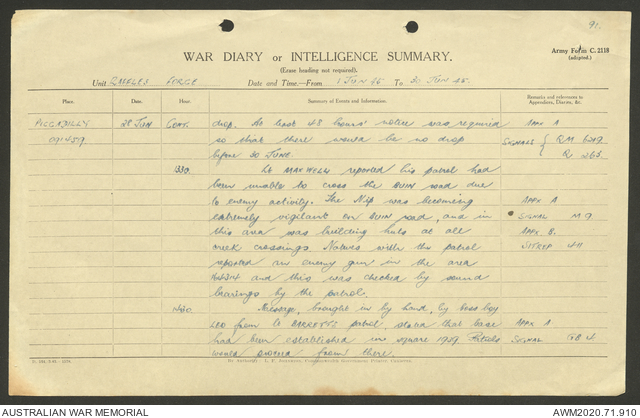 91.
WAR DIARY or INTELLIGENCE SUMMARY.
Army Form C. 2118
(adapted.)
(Erase heading not required).
Unit RAFFLES FORCE Date and Time—From 1 JUN 45 To 30 JUN 45.
Place. Date. Hour. Summary of Events and Information. Remarks and references to Appendices, Diaries, &c.
PICCADILLY 28 JUN CONT. drop. At least 48 hours' notice was required APPX A
091459. so that there would be no drop SIGNALS RM
before 30 JUNE. R 263.
1330. Lt MAXWELL reported his patrol had
been unable to cross the BUIN road due
to enemy activity. The Nip was becoming APPX A
extremely vigilant on BUIN road, and in SIGNAL M 9
this area was building huts at all APPX B.
creek crossings. Natives with the patrol SITREP 411
reported an enemy gun in the area
and this was checked by sound
bearings by the patrol.
1430. Message, brought in by hand, by boss boy
LEO from Lt patrol, stated that base APPX A
had been established in square 1959. Patrols SIGNAL GB 4
would proceed from there.